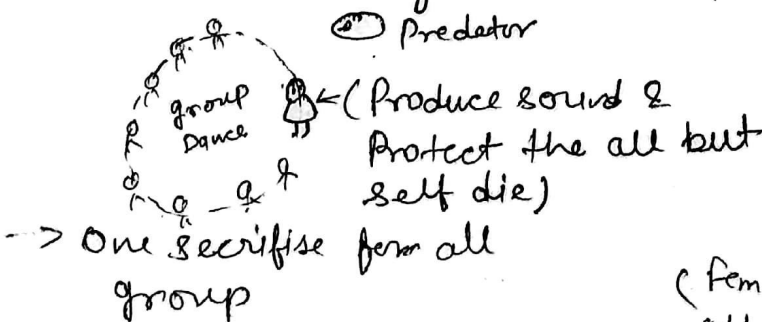 Predator
group
Dance
← (Produce sound &
Protect the all but
self die)
--> One secrifise form all
group
(fem